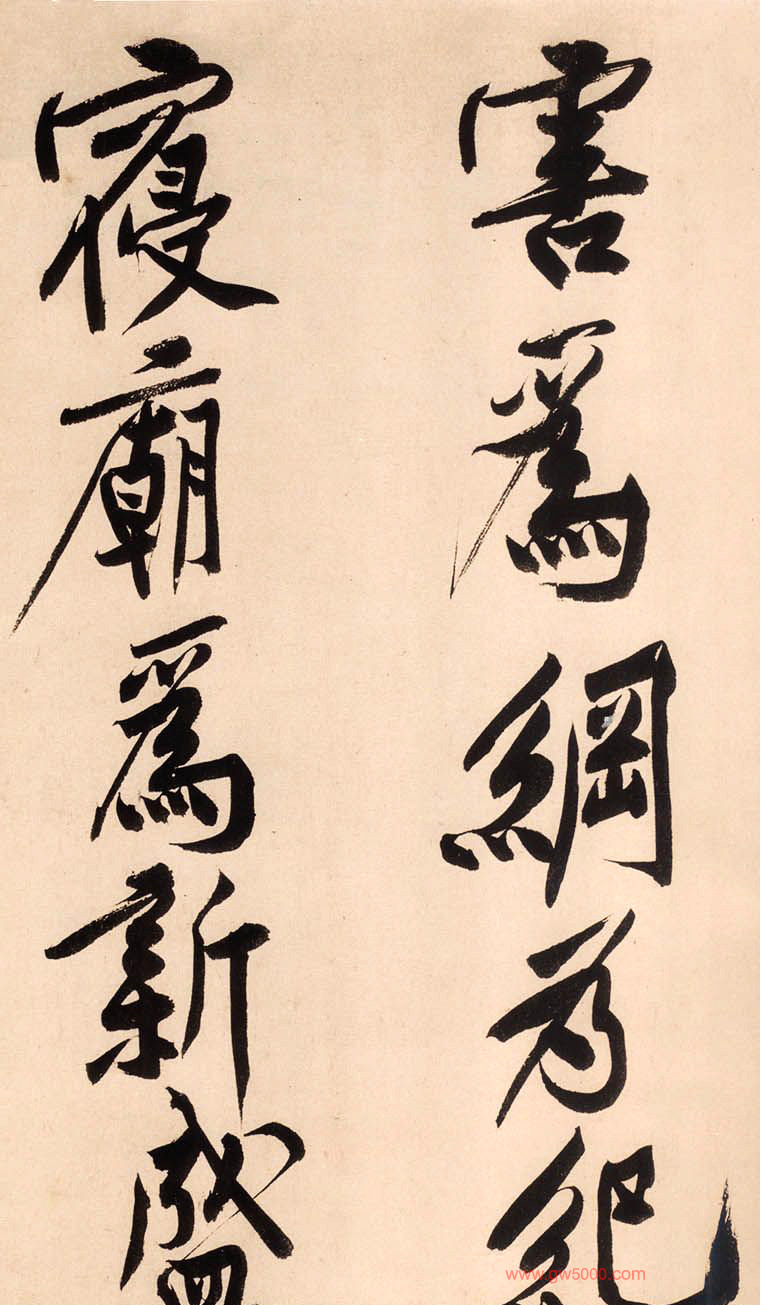 害爲綱为紀
寢廟爲新盛
www.gw5000.com